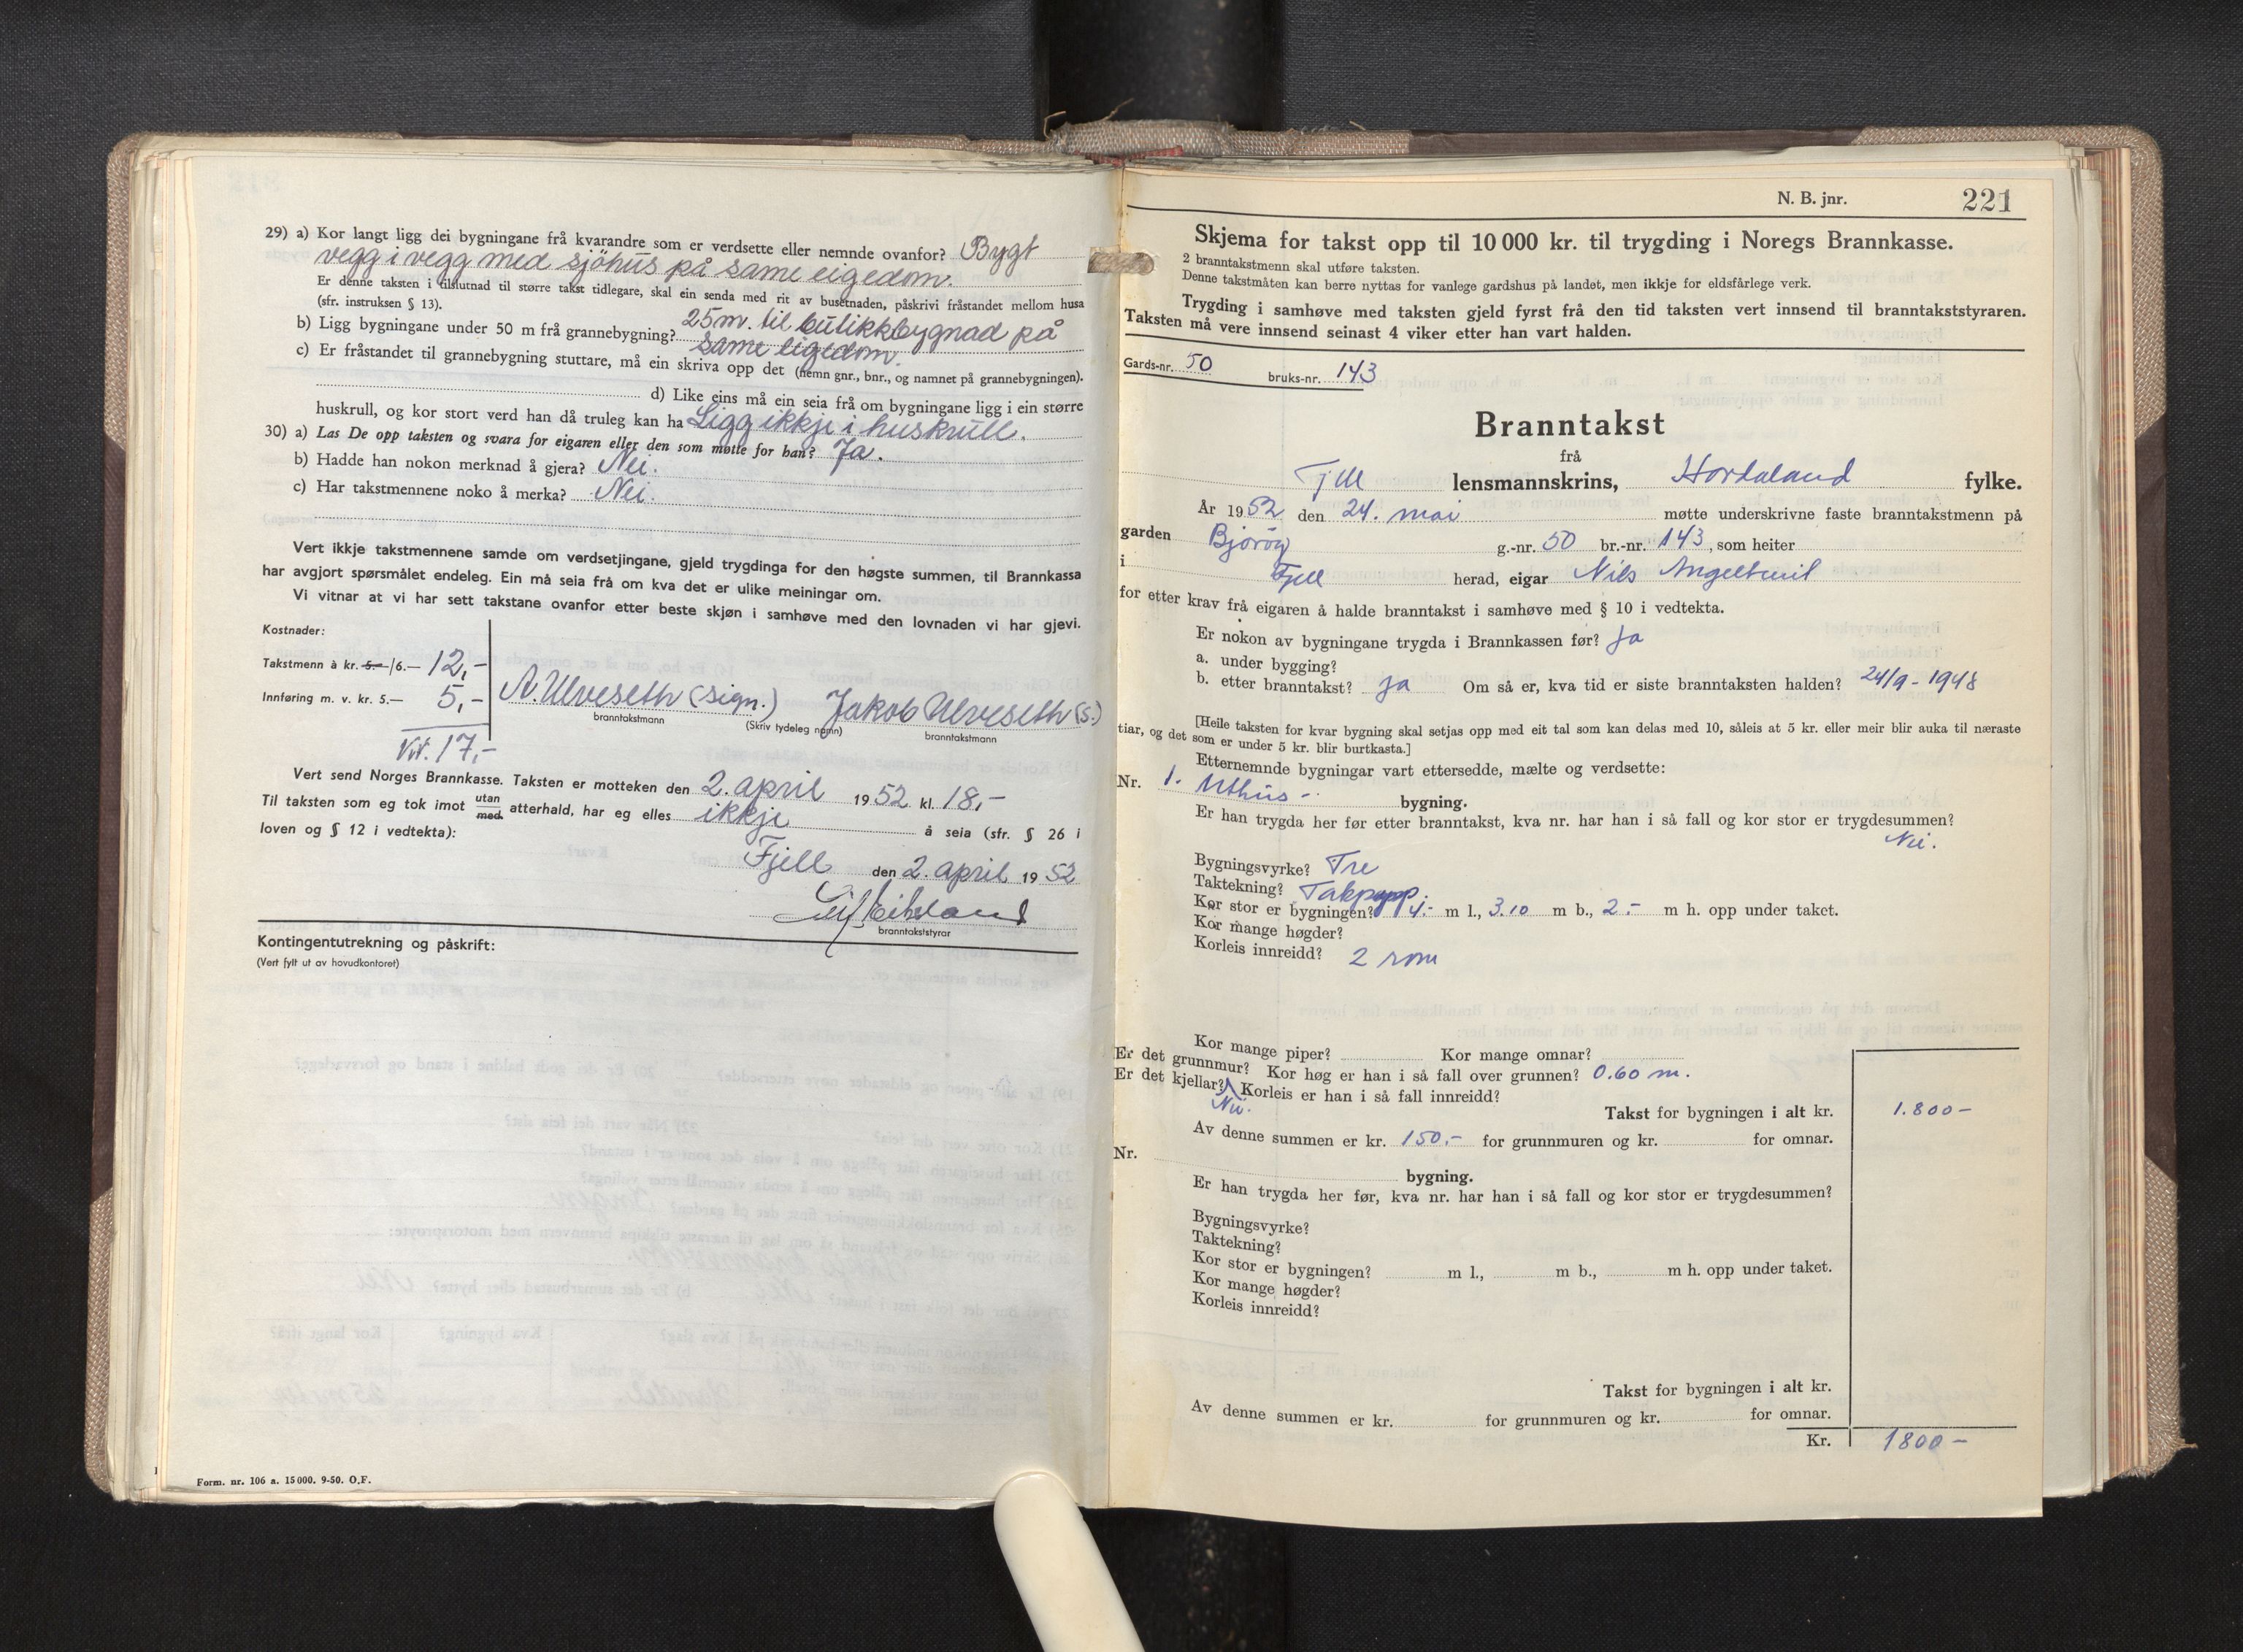 29) a) Kor langt ligg dei bygningane frå kvarandre som er verdsette eller nemnde ovanfor? Bygt
vegg i vegg med sjöhus på same eigedom.
Er denne taksten i tilslutnad til større takst tidlegare, skal ein senda med rit av busetnaden, påskrivi fråstandet mellom husa
(sfr. instruksen § 13).
b) Ligg bygningane under 50 m frå grannebygning? 25 m. til butikkbygnad på
same eigedom.
c) Er fråstandet til grannebygning stuttare, må ein skriva opp det (nemn gnr., bnr., og namnet på grannebygningen).
d) Like eins må ein seia frå om bygningane ligg i ein større
huskrull, og kor stort verd han då truleg kan ha Ligg ikkje i huskrull.
30) a) Las De opp taksten og svara for eigaren eller den som møtte for han? Ja.
b) Hadde han nokon merknad å gjera? Nei.
c) Har takstmennene noko å merka? Nei.
Vert ikkje takstmennene samde om verdsetjingane, gjeld trygdinga for den høgste summen, til Brannkassa
har avgjort spørsmålet endeleg. Ein må seia frå om kva det er ulike meiningar om.
Vi vitnar at vi har sett takstane ovanfor etter beste skjøn i samhøve med den lovnaden vi har gjevi.
Kostnader:
Takstmenn à kr. 5.— /6.— 12,-
Innføring m. v. kr. 5.— 5,-
Kr. 17,-
A. Ulveseth (sign.) Jakob Ulveseth (s.)
branntakstmann (Skriv tydeleg namn) branntakstmann
Vert send Norges Brannkasse. Taksten er motteken den 2. april 1952 kl. 18,-
Til taksten som eg tok imot utan med atterhald, har eg elles ikkje å seia (sfr. § 26 i
loven og § 12 i vedtekta):
Fjell den 2. april 1952
branntakststyrar
Kontingentutrekning og påskrift:
(Vert fylt ut av hovudkontoret)
Form. nr. 106 a. 15 000. 9-50. O.F.
N. B. jnr. 221
Skjema for takst opp til 10 000 kr. til trygding i Noregs Brannkasse.
2 branntakstmenn skal utføre taksten.
Denne takstmåten kan berre nyttas for vanlege gardshus på landet, men ikkje for eldsfårlege verk.
Trygding i samhøve med taksten gjeld fyrst frå den tid taksten vert innsend til branntakststyraren.
Taksten må vere innsend seinast 4 viker etter han vart halden.
Gards-nr. 50 bruks-nr. 143
Branntakst
frå
Fjell lensmannskrins, Hordaland fylke.
År 1952 den 24. mai møtte underskrivne faste branntakstmenn på
garden Bjorøy g.-nr. 50 br.-nr. 143, som heiter
i Fjell herad, eigar Nils Angeltveit
for etter krav frå eigaren å halde branntakst i samhøve med § 10 i vedtekta.
Er nokon av bygningane trygda i Brannkassen før? Ja
a. under bygging?
b. etter branntakst? ja Om så er, kva tid er siste branntaksten halden? 24/9 - 1948
[Heile taksten for kvar bygning skal setjas opp med eit tal som kan delas med 10, såleis at 5 kr. eller meir blir auka til næraste
tiar, og det som er under 5 kr. blir burtkasta.]
Etternemnde bygningar vart ettersedde, mælte og verdsette:
Nr. 1. Uthus - bygning.
Er han trygda her før etter branntakst, kva nr. har han i så fall og kor stor er trygdesummen?
Nei.
Bygningsvyrke? Tre
Taktekning? Takpapp
Kor stor er bygningen? 4.- m l., 3.10 m b., 2.- m h. opp under taket.
Kor mange høgder?
Korleis innreidd? 2 rom
Kor mange piper? Kor mange omnar?
Er det grunnmur? Kor høg er han i så fall over grunnen? 0.60 m.
Er det kjellar? Korleis er han i så fall innreidd?
Nei.
Takst for bygningen i alt kr. 1.800-
Av denne summen er kr. 150.- for grunnmuren og kr. for omnar.
Nr. bygning.
Er han trygda her før, kva nr. har han i så fall og kor stor er trygdesummen?
Bygningsvyrke?
Taktekning?
Kor stor er bygningen? m l., m b., m h. opp under taket.
Kor mange høgder?
Korleis innreidd?
Takst for bygningen i alt kr.
Av denne summen er kr. for grunnmuren og kr. for omnar.
Kr. 1800-